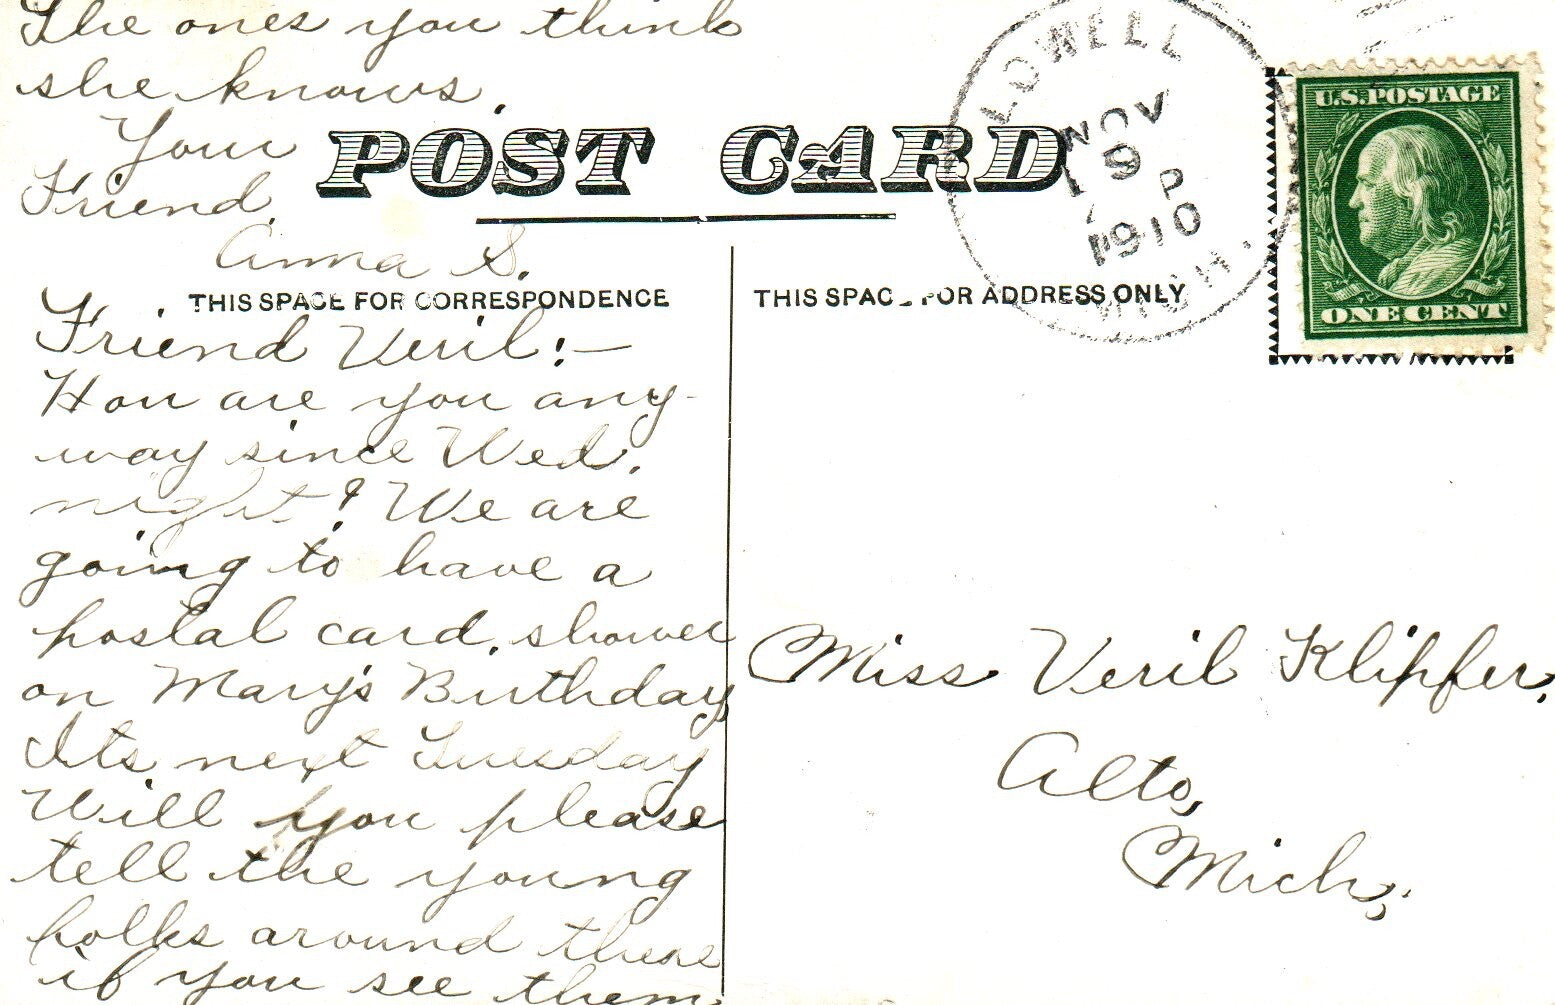 The ones you think
she knows.
Your
Friend.
Anna S.
POST CARD
THIS SPACE FOR CORRESPONDENCE
Friend Veril:—
How are you any-
way since Wed.
night? We are
going to have a
postal card shower
on Mary's Birthday
Its next Tuesday
Will you please
tell the young
folks around there
if you see them
THIS SPACE FOR ADDRESS ONLY
LOWELL
NOV
9
P
1910
MICH.
U.S. POSTAGE
ONE CENT
Miss Veril Klipfer,
Alto,
Mich.,